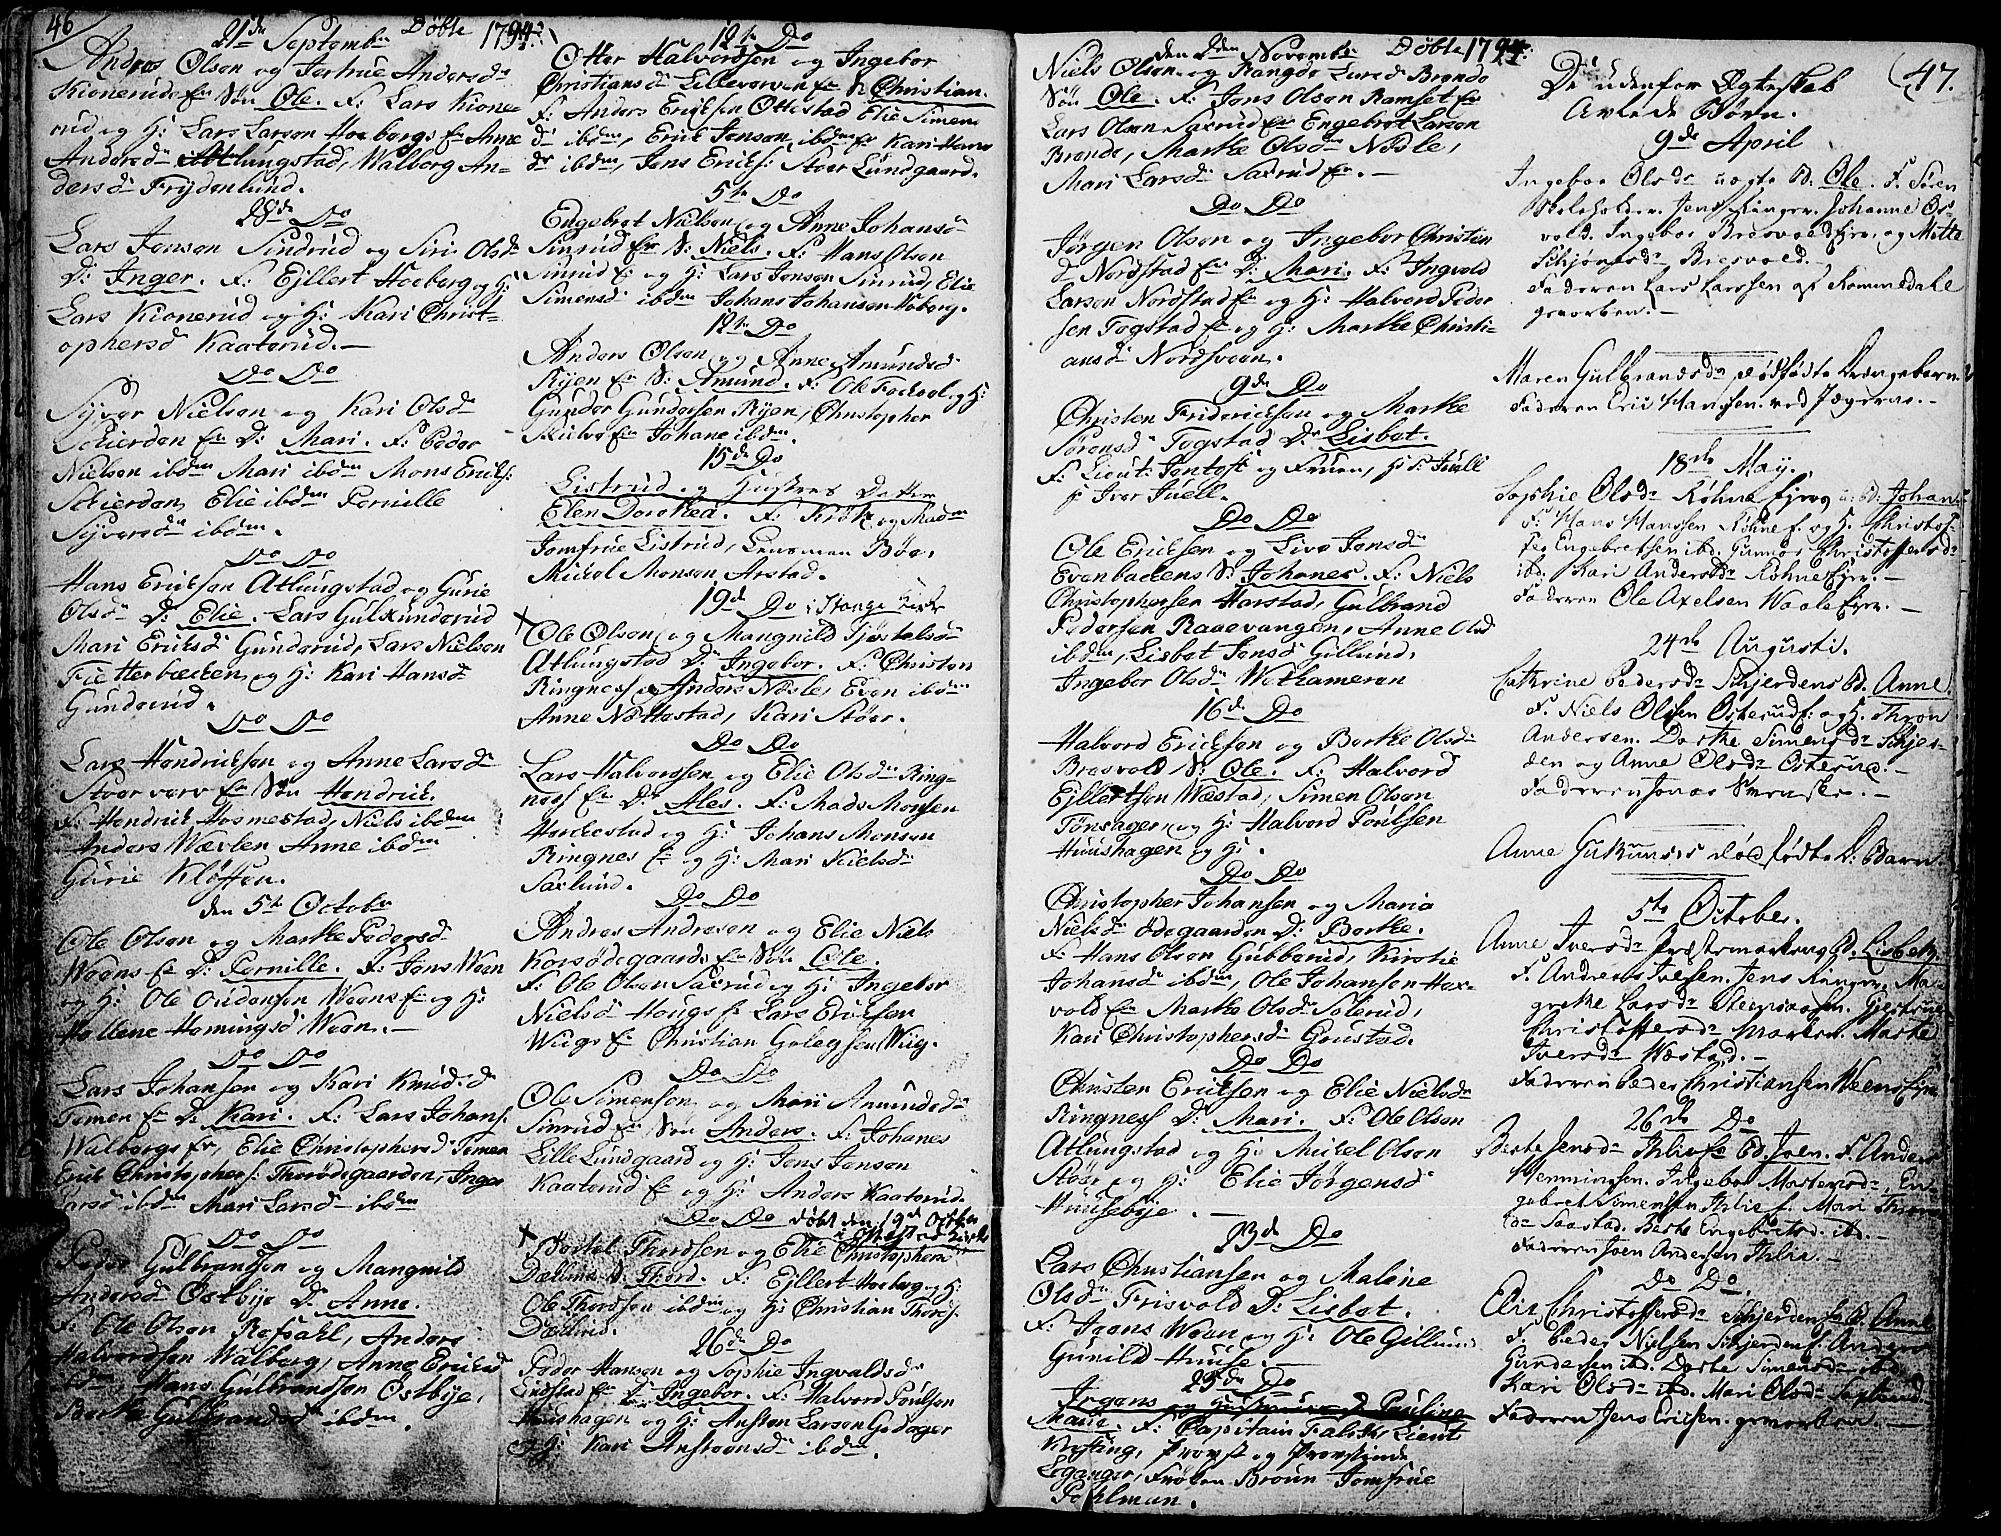 46
Døbte 1794
21de Septembr
Andreas Olsen og Jertrue Andersdr
Kionerud Er Søn Ole. F: Lars Kione-
rud og H: Lars Larsen Hoebergs Er Anne
Andersdr Atlungstad, Walborg An-
dersdr Frydenlund.
28de Do
Lars Jensen Sindrud og Siri Olsdr
D: Inger. F: Ejllert Hoeberg og H:
Lars Kionerud og H: Kari Christ-
ophersdr Kaaterud.
Do Do
Syver Nielsen og Kari Olsdr
Skierden Er D: Mari. F: Peder
Nielsen ibdm Mari ibdm Mons Ericks:
Skierden, Elie ibdm Pernille
Syversdr ibdm.
Do Do
Hans Ericksen Atlungstad og Gurie
Olsdr D: Elie. Lars Gulkunderud
Mari Eriksdr Gunderud, Lars Nielsen
Fietterbecken og H: Kari Hansdr
Gunderud.
Do Do
Lars Hendricksen og Anne Larsdr
Stoer Er Søn Hendrick.
F: Hendrick Hosmestad, Niels ibdm
Anders Wævlen Anne ibdm
Gurie Kløften.
den 5te Octobr
Ole Olsen og Marthe Pedersdr
Weens Er D: Pernille. F: Jens Ween
og H: Ole Weens Er og H:
Hemingsdr Ween.
Do Do
Lars Johansen og Kari Knudsdr
Temen Er D: Kari. F: Lars Johans:
Walborgs Er, Elie Christophersdr Temen
Erick Christophers: Therødegaarden, Inger
Larsdr ibdm Mari Larsdr ibdm
Do Do
Peder Gulbrandsen og Mangnild
Andersdr Ostbye D: Anne.
F: Ole Olsen Refsahl, Anders
Halvordsen Walberg, Anne Ericksdr
ibdm Hans Gulbrandsen Ostbye,
Berthe Gulbrandsdr ibdm.
12te Do
Otter Halvordsen og Ingebor
Christiansdr Lilleverven Er S: Christian.
F: Anders Ericksen Ottestad Elie Simens
dr ibdm, Erick Jensen ibdm Kari Hans
dr ibdm, Jens Ericks: Stoer Lundgaard.
5te Do
Engebret Nielsen og Anne Johansdr
Sinrud Er S: Niels. F: Hans Olsen
Sinrud Er og H: Lars Jensen Sinrud, Elie
Simensdr ibdm Johans Johansen Hoberg.
12te Do
Anders Olsen og Anne Amundsdr
Ryen Er S: Amund. F: Ole og H:
Gunder Gundersen Ryen, Christopher
Er Johane ibdm.
15de Do
Listrud og Hustrues Datter
Elen Dorothea. F: og Madm
Jomfrue Listrud, Lensman Bøe,
Mickel Monsen Arstad.
19de Do i Stange Kirke
Ole Olsen og Mangnild Tjøstelsdr
Atlungstad D: Ingebor. F: Christen
Ringness Anders Næsle, Even ibdm
Anne Nættestad, Kari Støer.
Do Do
Lars Halvordsen og Elie Olsdr Ring-
ness Er D: Ales. F: Mads Monsen
Horckestad og H: Johans Monsen
Ringnes Er og H: Mari Kielsdr
Saxlund.
Do Do
Andreas Andresen og Elie Niels
Korsødegaards Er Søn Ole.
F: Ole Olsen Saxrud og H: Ingebor
Nielsdr Hougs Er Lars Ericksen
Wiigs Er Christian Wiig.
Do Do
Ole Simensen og Mari Amundsdr
Sinrud Er Søn Anders. F: Johanes
Lille Lundgaard og H: Jens Jensen
Kaaterud Er og H: Anders Kaaterud.
Do Do døbt den 19de Octbr
i Ottestad Kirke
Bertel Thordsen og Elie Christophersdr
Dællerud S: Thord. F: Ejllert Hoeberg og H:
Ole Thordsen ibdm og H: Christian Thords:
Dællerud.
26de Do
Peder Hansen og Sophie Ingvaldsdr
Er D: Ingebor. F: Halvord Poulsen
Huushagen og H: Ansten Larsen Godager
og H: Kari Anstensdr ibdm.
den 2den Novembr Døbte 1794
Niels Olsen og Rangdo Larsdr Brende
Søn Ole. F: Jens Olsen Romset Er
Lars Olsen Saxrud Er Engebret Larsen
Brende, Marthe Olsdr Næsle,
Mari Larsdr Saxrud Er.
Do Do
Jørgen Olsen og Ingebor Christen
dr Nordstad Er D: Mari. F: Ingvold
Larsen Nordstad Er og H: Halvord Peder
sen Togstad Er og H: Marthe Christi-
ansdr Nordsveen.
9de Do
Christen Friderichsen og Marthe
Sørensdr Togstad D: Lisbet.
F: Lieut: Jentoft og Fruen, H: F: Juell
H: Iver Juell.
Do Do
Ole Ericksen og Live Jensdr
Evenbackens S: Johanes. F: Niels
Christophersen Harstad, Gulbrand
Pedersen Raaevangen, Anne Olsdr
ibdm, Lisbet Jensdr Gillund,
Ingebor Olsdr Wethameren
16de Do
Halvord Ericksen og Berthe Olsdr
Bresvold, S: Ole. F: Halvord
Ejllertsen Wæstad, Simen Olsen
Tønsager, og H: Halvord Poulsen
Huushagen og H:
Do Do
Christopher Johansen og Maria
Nielsdr Ødegaarden D: Berthe.
F: Hans Olsen Gubberud, Kirstie
Johansdr ibdm, Ole Johansen Hox-
vold Er Marthe Olsdr Solerud,
Kari Christophersdr Goustad.
Do Do
Christen Ericksen og Elie Nielsdr
Ringness D: Mari. F: Ole Olsen
Atlungstad og H: Mickel Olsen
Støer og H: Elie Jørgensdr
Huusebye.
23de Do
Lars Christiansen og Malene
Olsdr Frisvold D: Lisbet.
F: Jens Ween og H: Ole Gillund
Gunild Huuse.
29de Do
Irgens og Hustrues D: Pauline
Marie. F: Capitain Lieut
Krefting, Provst og Provstinde
Leganger, Frøken Bruun Jomfrue
Pohlman.
47.
De udenfor Ægteskab
Avlede Børn.
9de April
Ingebor Olsdr uægte B. Ole. F. Søren
Skoleholder. Jens Ringer. Johanne Bes
vold. Ingebor Bresvold Eyer, og Mette
Schjønesdr Bresvold.
Faderen Lars Larssen af Rommedahl
geworben.
Maren Gulbrandsdr dødfødte Drengebarn.
Faderen Eric Hansen ved Jægerne.
18de May.
Sophie Olsdr Røhne Eyer, u: B: Johan
F. Hans Hanssen Røhne E. og H. Christof-
fer Engebretsen ibd. Gunnor Christoffersdr
ibd. Kari Andersdr Røhne Eyer.
Faderen Ole Axelsen Waale Eyer.
24de Augusti.
Cathrine Pedersdr Schjerdens B. Anne.
F. Niels Olsen Osterud E. og H. Thron
Andersen. Dorthe Simensdr Schjer-
den og Anne Olsdr Osterud.
Faderen Jonas Svenske.
Anne dødfødte D: Barn.
5te October.
Anne Iversdr Præstemarkens B. Lisbeth.
F. Andreas Iversen. Jens Ringer. Mar-
grethe Larsdr Steensaasen. Gjertrue
Christoffersdr Morken. Marthe
Iversdr Wæstad.
Faderen Peder Christiansen Weens Eyer
26de Do
Berthe Jensdr Ihle Er B. Joen. F. Anders
Henningsen. Ingebor Mortensdr, En-
gebret Simensen Ihlie E. Mari Thrond
sdr Saastad. Berthe Engebretsd. ibd.
Faderen Joen Andersen Ihlie.
Do Do.
Elie Christoffersdr Schjerdens B. Anne
F. Peder Nielsen Schjerden E. Anders
Gundersen ibd. Dorthe Simensdr ibd.
Kari Olsdr ibd. Mari Olsdr
Faderen Jens Ericsen geworben.